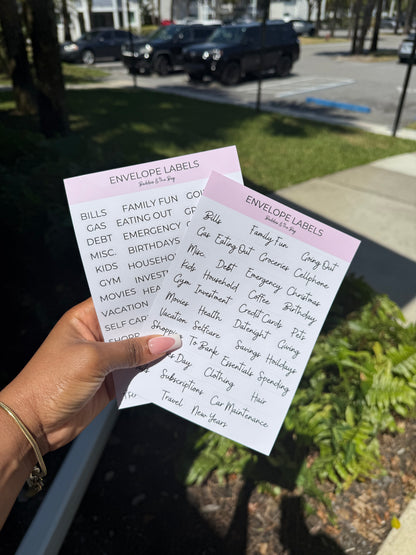 ENVELOPE LABELS
BILLS FAMILY FUN GO
GAS EATING OUT GR
DEBT EMERGENCY
MISC. BIRTHDAYS
KIDS HOUSEHO
GYM INVEST
MOVIES HEA
VACATIO
SELF CAR
SHOPP
ENVELOPE LABELS
Bills Family Fun Going Out
Gas Eating Out Groceries Cellphone
Misc. Debt Emergency Christmas
Kids Household Coffee Birthday
Gym Investment Credit Cards Pets
Movies Health Datenight Giving
Vacation Selfcare Savings Holidays
Shopping To Bank Essentials Spending
Day Clothing Hair
Subscriptions Car Maintenance
Travel New Years